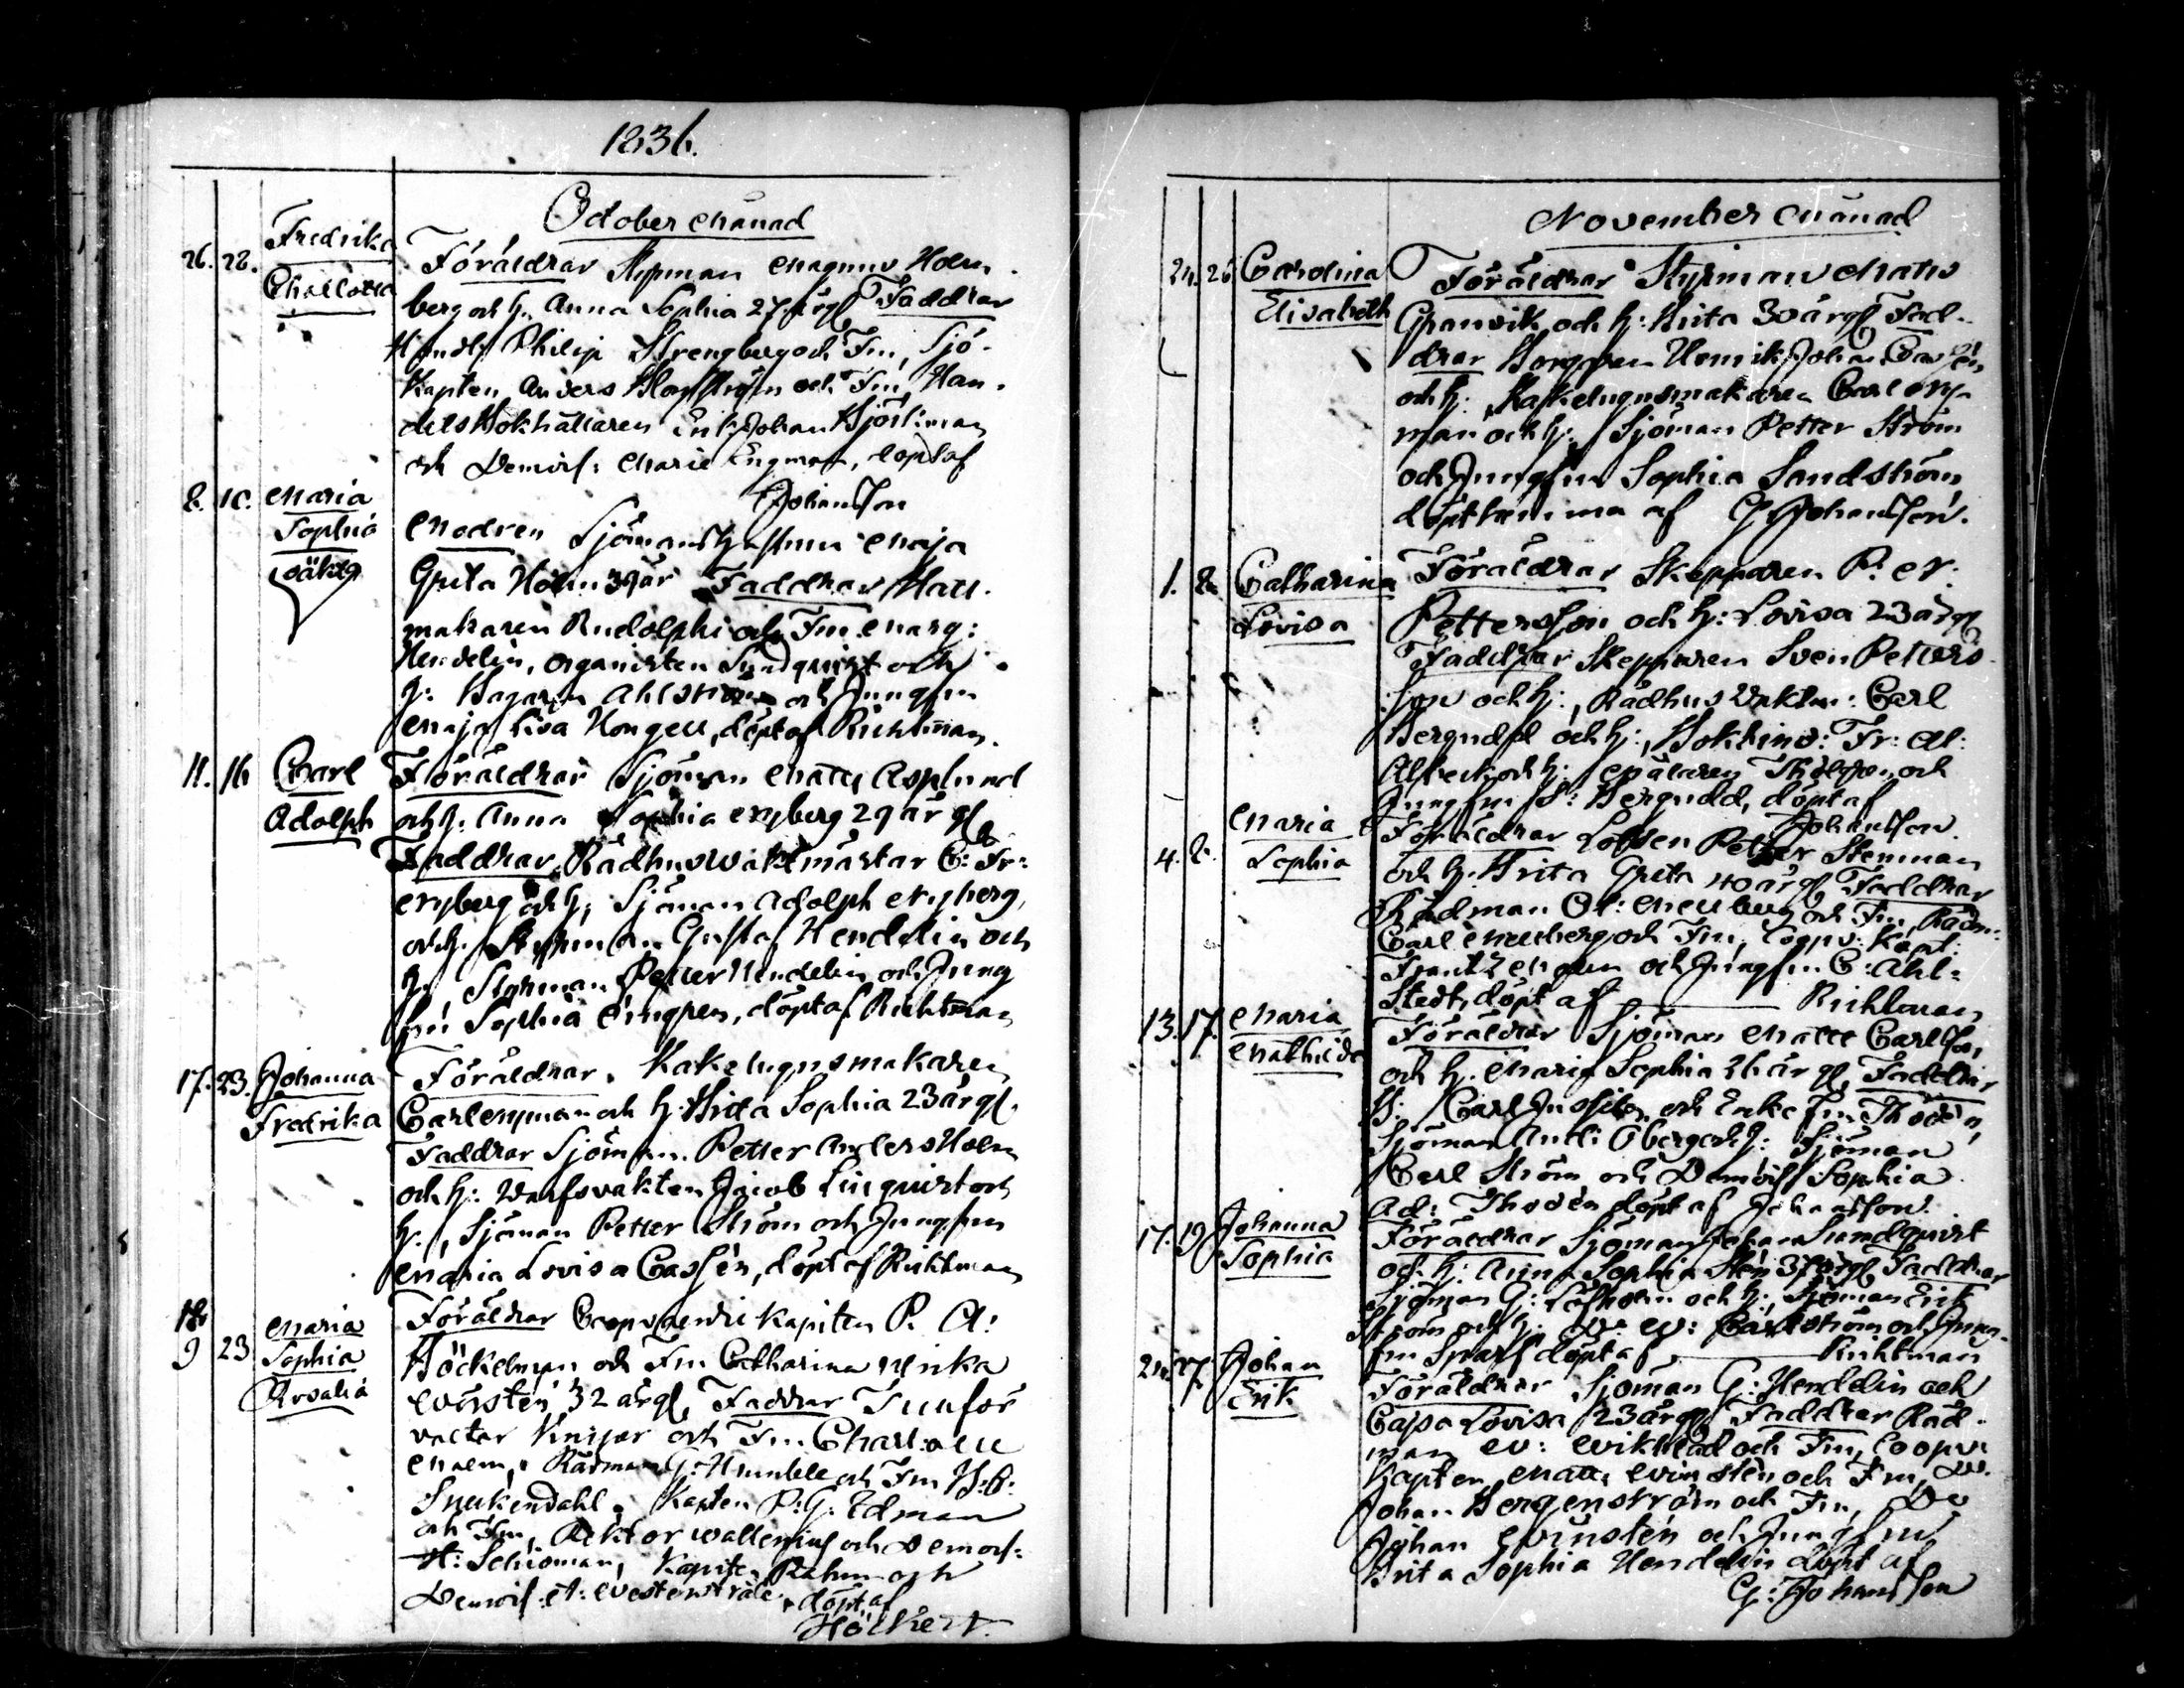 1836.
October Månad
26. 28. Fredrika Charlotta
Föräldrar Styrman Magnus Holm
berg och h. Anna Sophia 27 årg Faddrar
Handl Philip Strengberg och Fru, Sjö-
Kapten Anders och Fru Han-
delsBokhållaren Erik Johan Björkman
och Demois: Maria Engman, döpt af
Johansson
8. 10. Maria Sophia oäkta
Modren Sjömans Maja
Greta Holm 39 år Faddrar Hatt-
makaren Rudolphi och Fru Marg:
Hendelin, Organisten Sundquist och
h: Bagaren Ahlström och Jungfru
Maja Lisa Kongell, döpt af Richtman.
11. 16 Carl Adolph
Föräldrar Sjöman Matts Asplund
och h. Anna Sophia Nyberg 29 år gl
Faddrar Rådhuswaktmästar C: Fr:
Nyberg och h; Sjöman Adolph Nyberg,
och h. Styrman Gustaf Hendelin och
h. Styrman Petter Hendelin och Jung
fru Sophia Engren, döpt af Richtman
17. 23. Johanna Fredrika
Föräldrar. Kakelugnsmakaren
Carl Nyman och h: Brita Sophia 23 årgl.
Faddrar Sjöman Petter Anders Holm
och h: Warfsvakten Jacob Linquist och
h., Sjöman Petter Ström och Jungfrun
Maria Lovisa Cassén, döpt af Richtman
18 9 23 Maria Sophia Rosalia
Föräldrar Coopvaerdie Kapiten P. A:
Böckelman och Fru Catharina Ulrika
Winstén 32 årgl, Faddrar Tullför
valtar och Fru Charl:
Malm, Rådman G: Humble och Fru B:
Snickendahl, Kapten P: G: Edman
och Fru, Rektor Wallenius och Demois:
H: Schöman, Kapiten Rahm och
Demois: A: Westerstråle, döpt af
Hölkert.
November Månad
24. 26 Carolina Elisabeth
Föräldrar Styrman Mats
Granvik och h: Brita 30 årgl Fad-
drar Borgaren Henrik Johan Cassén
och h: Kakelugnsmakaren Carl Ny-
man och h: Sjöman Petter Ström
och Jungfru Sophia Sandström
döpt hemma af G: Johansson.
1. 2 Catharina Lovisa
Föräldrar Skepparen P. N:
Pettersson och h: Lovisa 23 årgl
Faddrar Skepparen Sven Petters
son och h:, Rådhus Vaktm: Carl
Bergudd och h:, Bokbind: Fr: Al:
och h: Målaren och
Jungfru S: Bergudd, döpt af
Johansson.
4. 8. Maria Sophia
Föräldrar Lotsen Petter Stenman
och h: Brita Greta 40 årgl Faddrar
Rådman Ol: och Fru, Rådm:
Carl och Fru, Coopv: Kapt:
Frantz och Jungfru C: Ahl-
stedt, döpt af Richtman
13. 17. Maria Mathilda
Föräldrar Sjöman Matts Carlsson
och h. Maria Sophia 26 år gl, Faddrar
B: Carl Jussilen och Enke Fru Thodén,
Sjöman Antti Öberg och h: Sjöman
Carl Ström och Demois: Sophia
Ad: Thodén döpt af Johansson.
17. 19 Johanna Sophia
Föräldrar Sjöman Johan Sundquist
och h: Anna Sophia Stén 37 årgl, Faddrar
Sjöman G: Löfholm och h:, Sjöman Erik
Ström och h: D: W: Carlström och Jung-
fru döpt af Richtman
24 27. Johan Erik
Föräldrar Sjöman G: Hendelin och
Cajsa Lovisa 23 årgl Faddrar Råd-
man W: Wikblad och Fru, Coopv:
Kapten Matts Winstén och Fru, D:
Johan Bergenström och Fru, D:
Johan Winstén och Jungfru
Brita Sophia Hendelin döpt af
G: Johansson